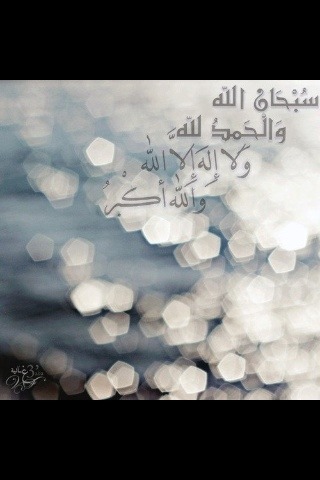 سُبْحَانَ الله
وَالْحَمدُ للهِ
وَلَا إِلَهَ إِلاَّ اللهُ
وَاللهُ أَكْبَرُ